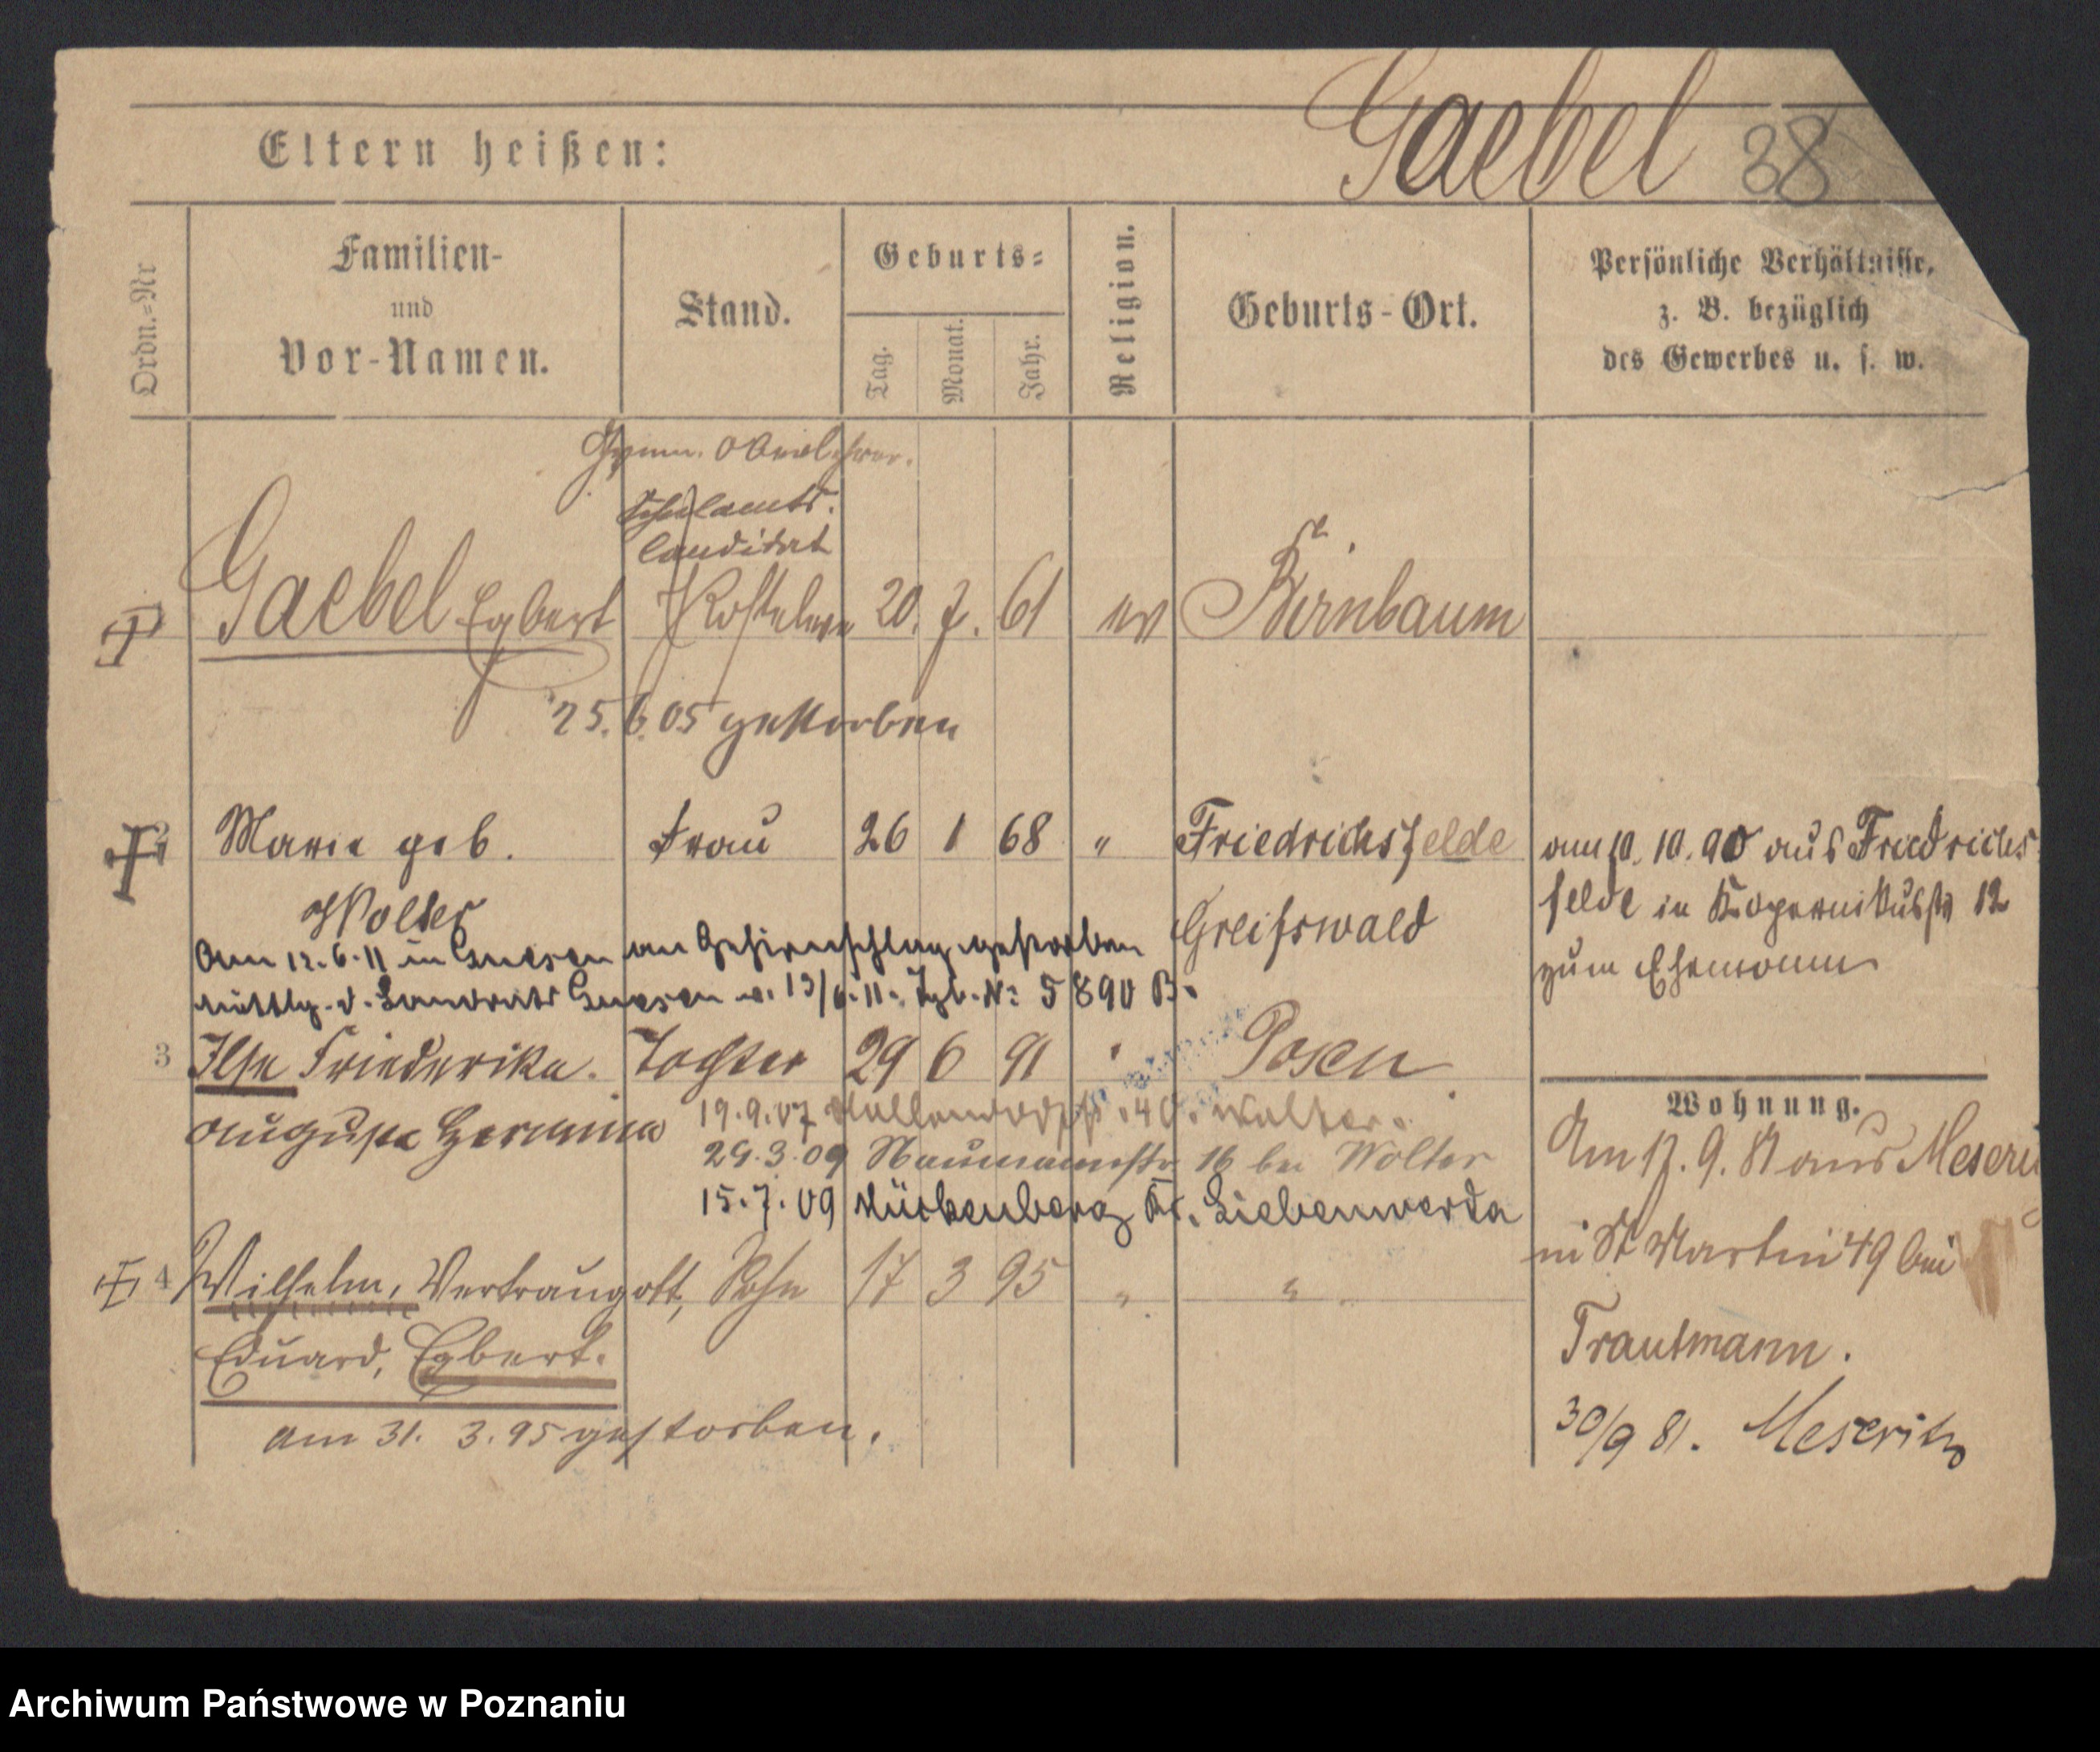 Gaebel 38
Eltern heißen:
Ordn.=Nr
Familien-
und
Vor-Namen.
Stand.
Geburts=
Tag.
Monat.
Jahr.
Religion.
Geburts-Ort.
Persönliche Verhältnisse,
z. B. bezüglich
des Gewerbes u. s. w.
Gymn. Oberlehrer.
Schulamts.
Candidat
Gaebel Egbert 20. 7. 61 ev Birnbaum
25.6.05 gestorben
Marie geb. Frau 26 1 68 " Friedrichsfelde
Wolter
Greifswald
am 10. 10. 90 aus Friedrichs
felde in Kopernikusstr 12
zum Ehemann
Am 12.6.11 in Gnesen an Gehirnschlag gestorben
Mittlg. d. Landrats Gnesen v. 13/6.11. Tgb. No 5890 B.
3 Ilse Friederika. Tochter 29 6 91 " Posen
Auguste Hermine
19.9.07 40. Wolter.
29.3.09 Naumannstr 16 bei Wolter
15.7.09 Mückenberg Kr. Liebenwerda
4 Wilhelm, Vertraugott, Sohn 17 3 95 " "
Eduard, Egbert.
am 31. 3. 95 gestorben.
Wohnung.
Am 17. 9. 81 aus Meseri
in St Martin 49 bei
Trautmann.
30/9 81. Meseritz